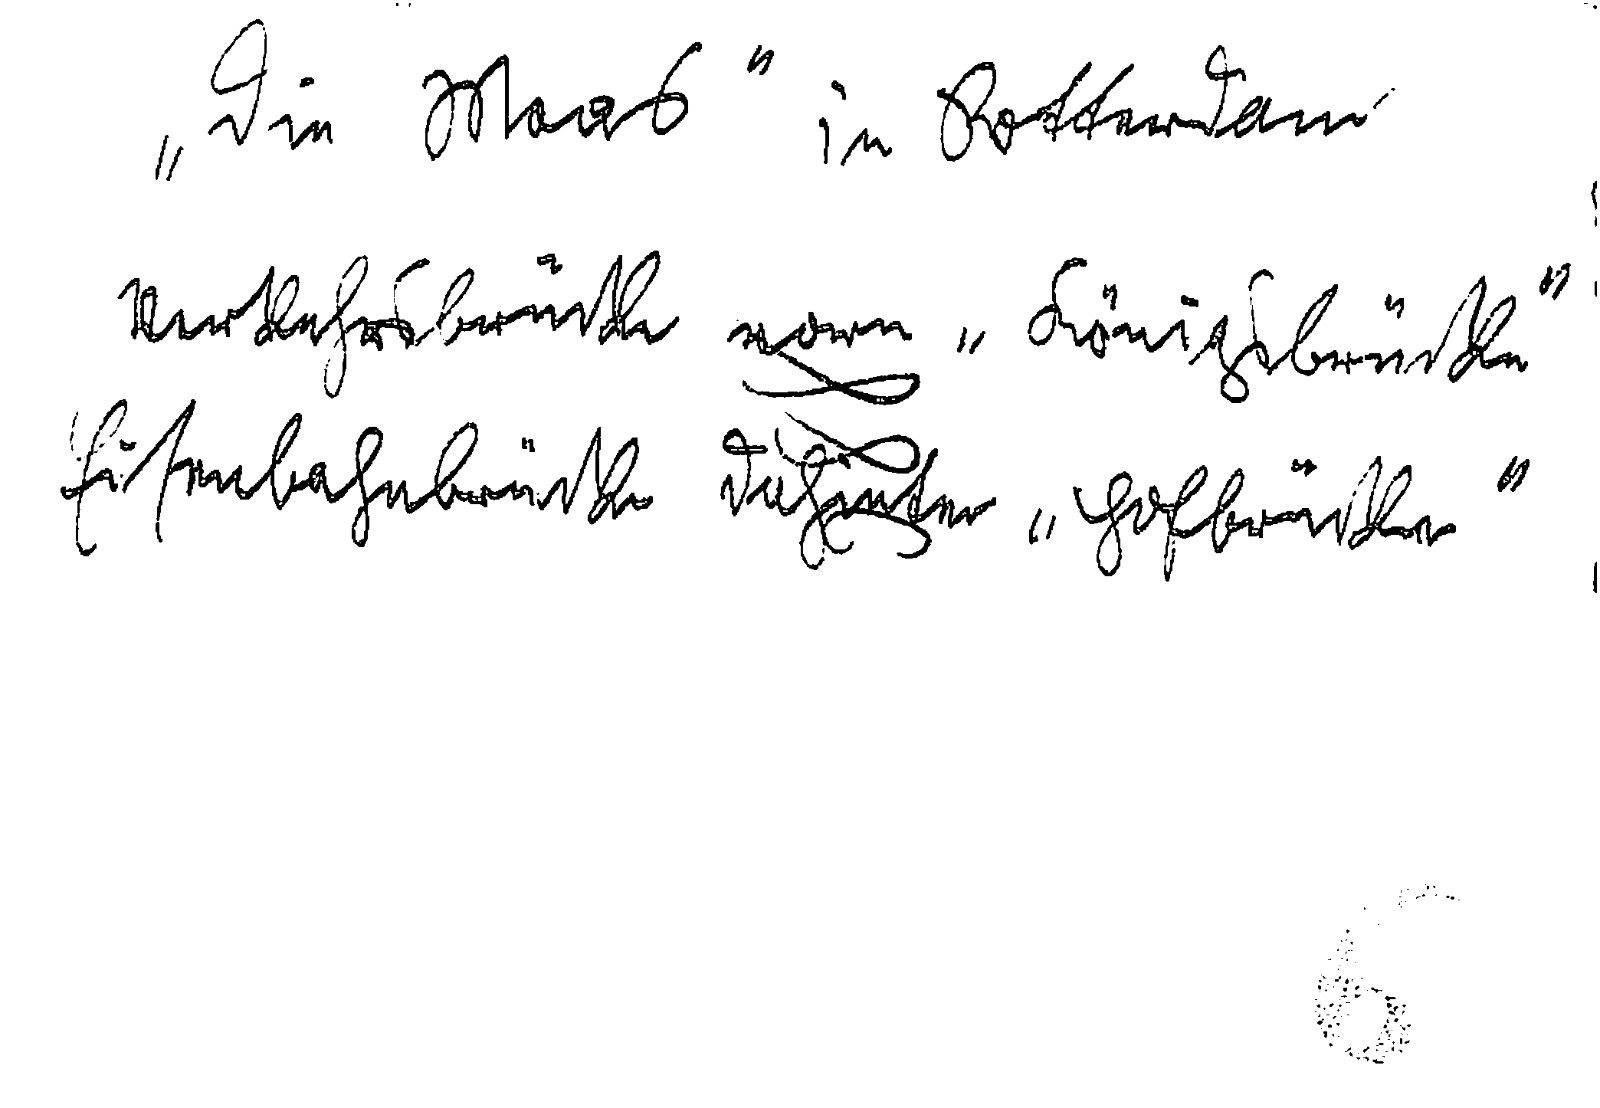 „Die Maas" in Rotterdam
Verkehrsbrücke vorn „Königsbrücke"
Eisenbahnbrücke dahinter „Hofbrücke"
6